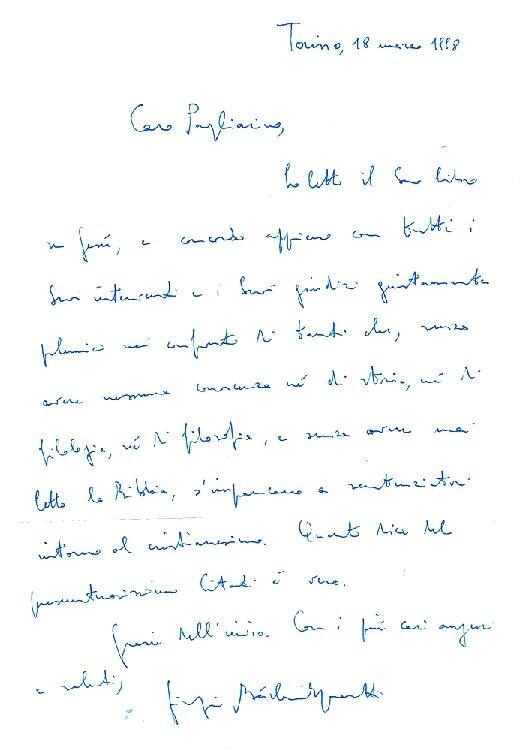 Torino, 18 marzo 1998
Caro Pagliarino,
Ho letto il Suo libro
su Gesù, e concordo appieno con tutti i
Suoi intendi e i Suoi giudizi giustamente
polemici nei confronti di tanti che, senza
avere nessuna conoscenza né di storia, né di
filologia, né di filosofia, e senza avere mai
letto la Bibbia, s'impancano a sentenziatori
intorno al cristianesimo. Quanto dice del
presuntuosissimo Citati è vero.
Grazie dell'invio. Con i più cari auguri
e saluti,
Giorgio Bárberi Squarotti